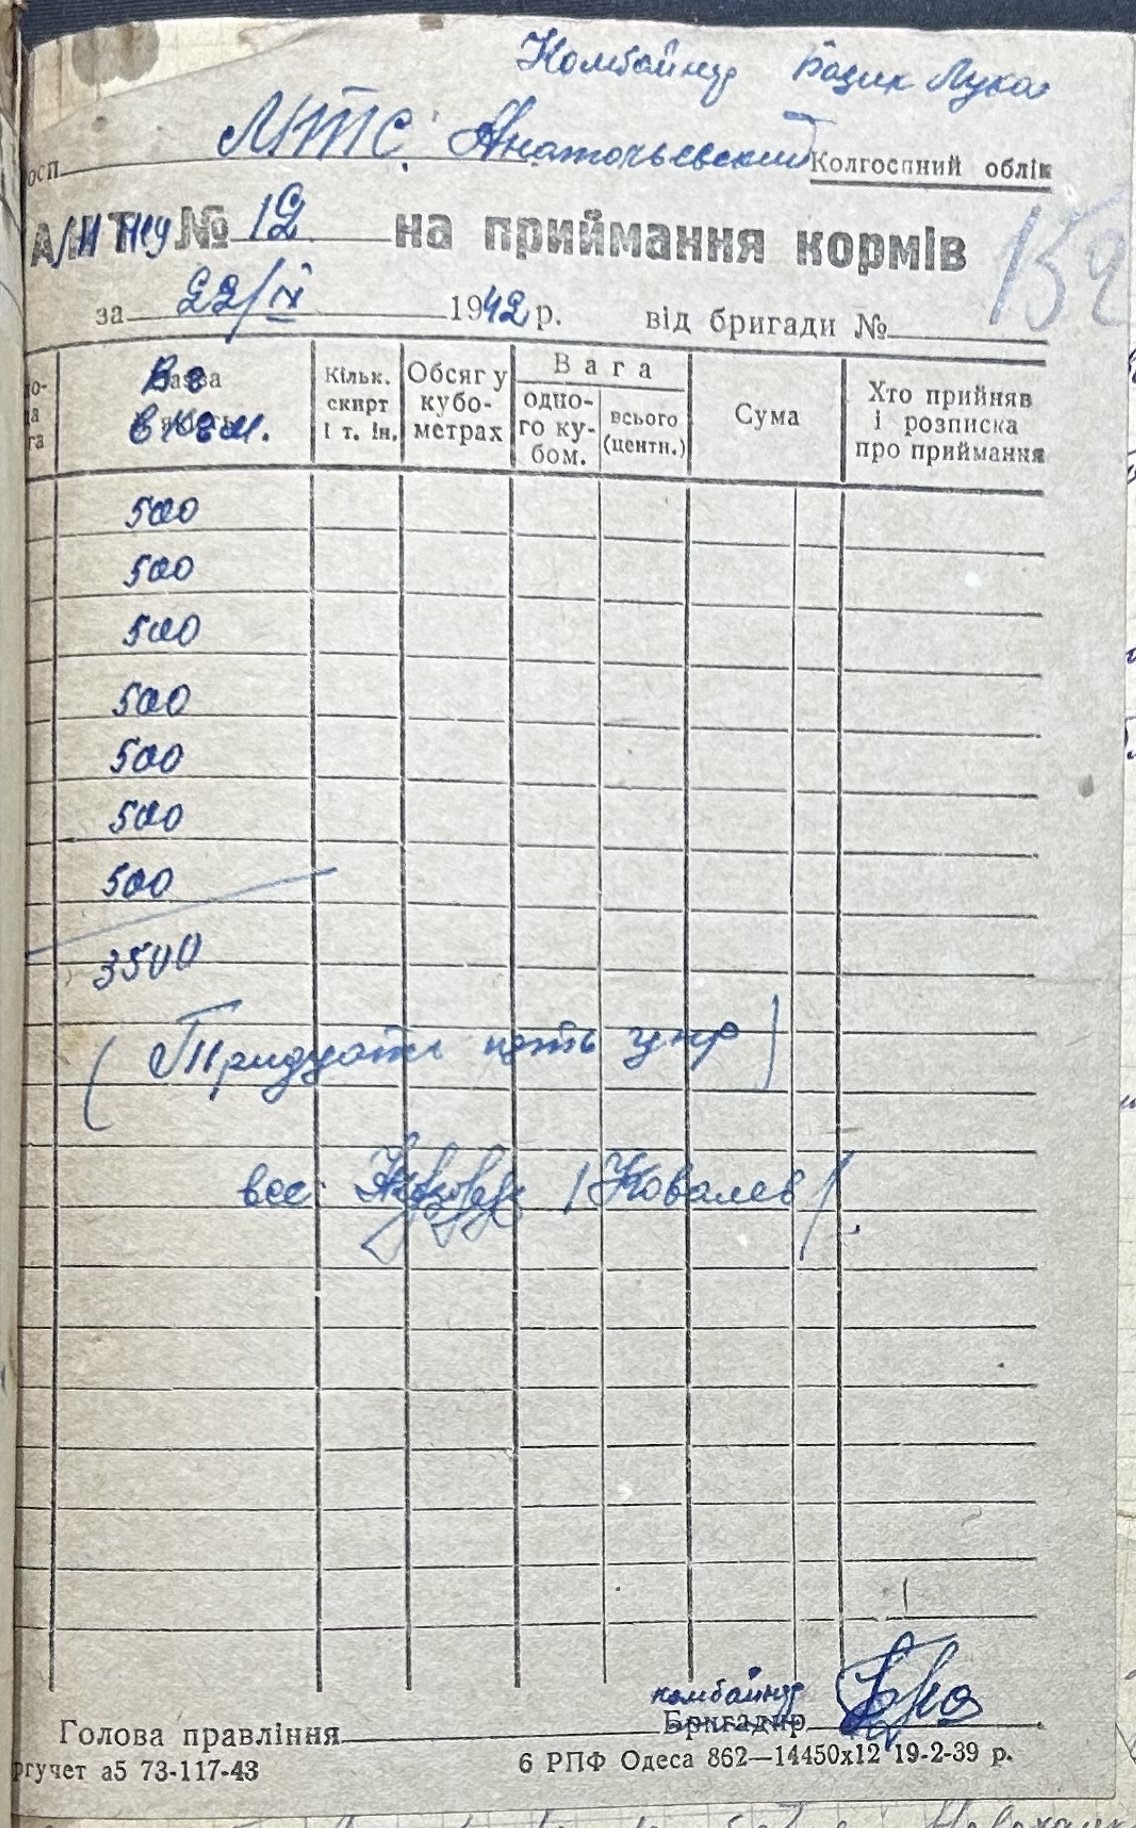 Комбайнер Бацик Лука
МТС Анатольевский
осп Колгоспний облік
АКТ № 12 на приймання кормів
152
за 22/IX 1942 р. від бригади №
Вес в кгм.
Назва
Кільк. скирт і т. ін.
Обсяг у кубо-метрах
Вага
одно-го ку-бом.
всього (центн.)
Сума
Хто прийняв і розписка про приймання
500
500
500
500
500
500
500
3500
(Тридцать пять цнр)
вес. /Ковалев/
комбайнер
Голова правління Бригадир
ргучет а5 73-117-43 6 РПФ Одеса 862—14450х12 19-2-39 р.